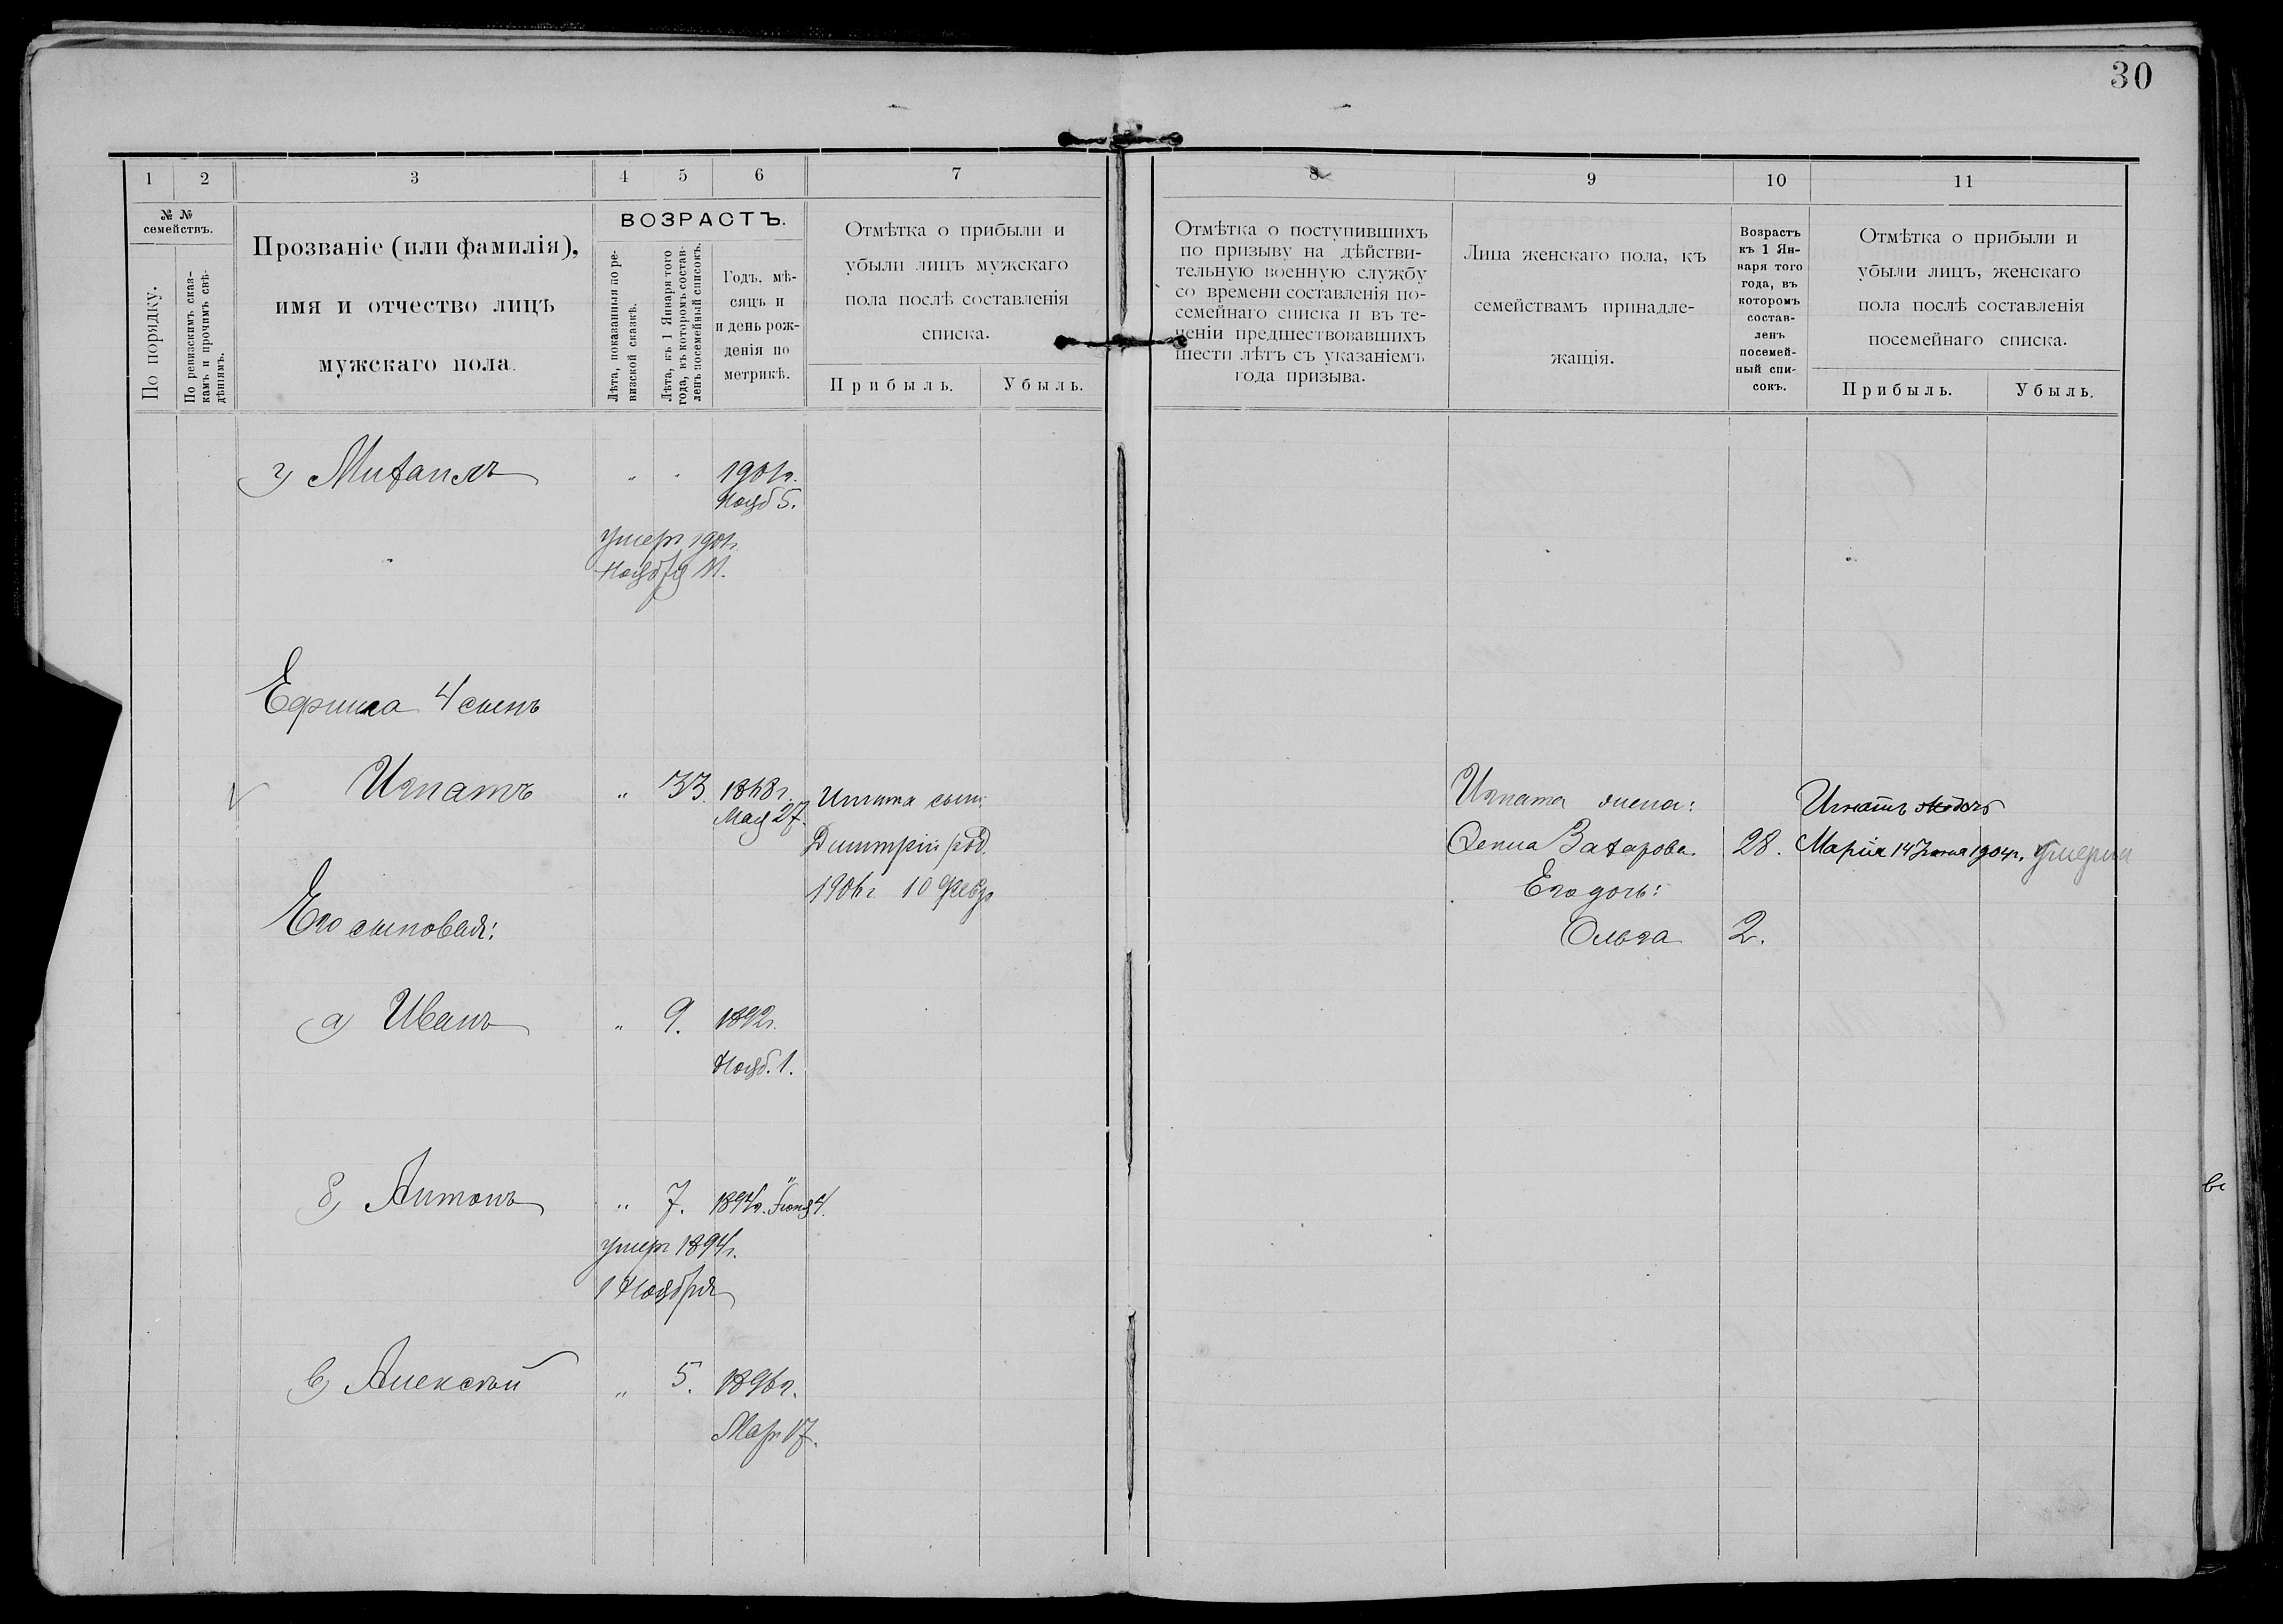 30
1
2
3
4
5
6
7
8
9
10
11
№ № семействъ.
По порядку.
По ревизскимъ сказкамъ и прочимъ свѣдѣніямъ.
Прозваніе (или фамилія),
имя и отчество лицъ
мужскаго пола.
ВОЗРАСТЪ.
Лѣта, показанныя по ревизской сказкѣ.
Лѣта, къ 1 Января того года, въ которомъ составленъ посемейный списокъ.
Годъ, мѣ-
сяцъ и
и день рож-
денія по
метрикѣ.
Отмѣтка о прибыли и
убыли лицъ мужскаго
пола послѣ составленія
списка.
Прибыль.
Убыль.
Отмѣтка о поступившихъ
по призыву на дѣйстви-
тельную военную службу
со времени составленія по-
семейнаго списка и въ те-
ченіи предшествовавшихъ
шести лѣтъ съ указаніемъ
года призыва.
Лица женскаго пола, къ
семействамъ принадле-
жащія.
Возрастъ
къ 1 Ян-
варя того
года, въ
которомъ
состав-
ленъ
посемей-
ный спи-
сокъ.
Отмѣтка о прибыли и
убыли лицъ, женскаго
пола послѣ составленія
посемейнаго списка.
Прибыль.
Убыль.
г) Михаилъ " " 1901г.
Нояб 5.
умеръ 1901г.
Ноября 11.
Ефима 4 сынъ
Игнатъ " 33. 1868г.
Мая 27.
Игната сынъ
Дмитрій род.
1906г. 10 Февр
Игната жена:
Захарова. 28.
Его дочь:
Ольга 2.
Игнатъ
Марія 14 1904г. умерла
Его сыновья:
а) Иванъ " 9. 1892г.
Нояб. 1.
б) Антонъ " 7. 1894г. Іюня 4.
умеръ 1894г.
1 Ноября
в) Алексѣй " 5. 1896г.
Мар. 17.